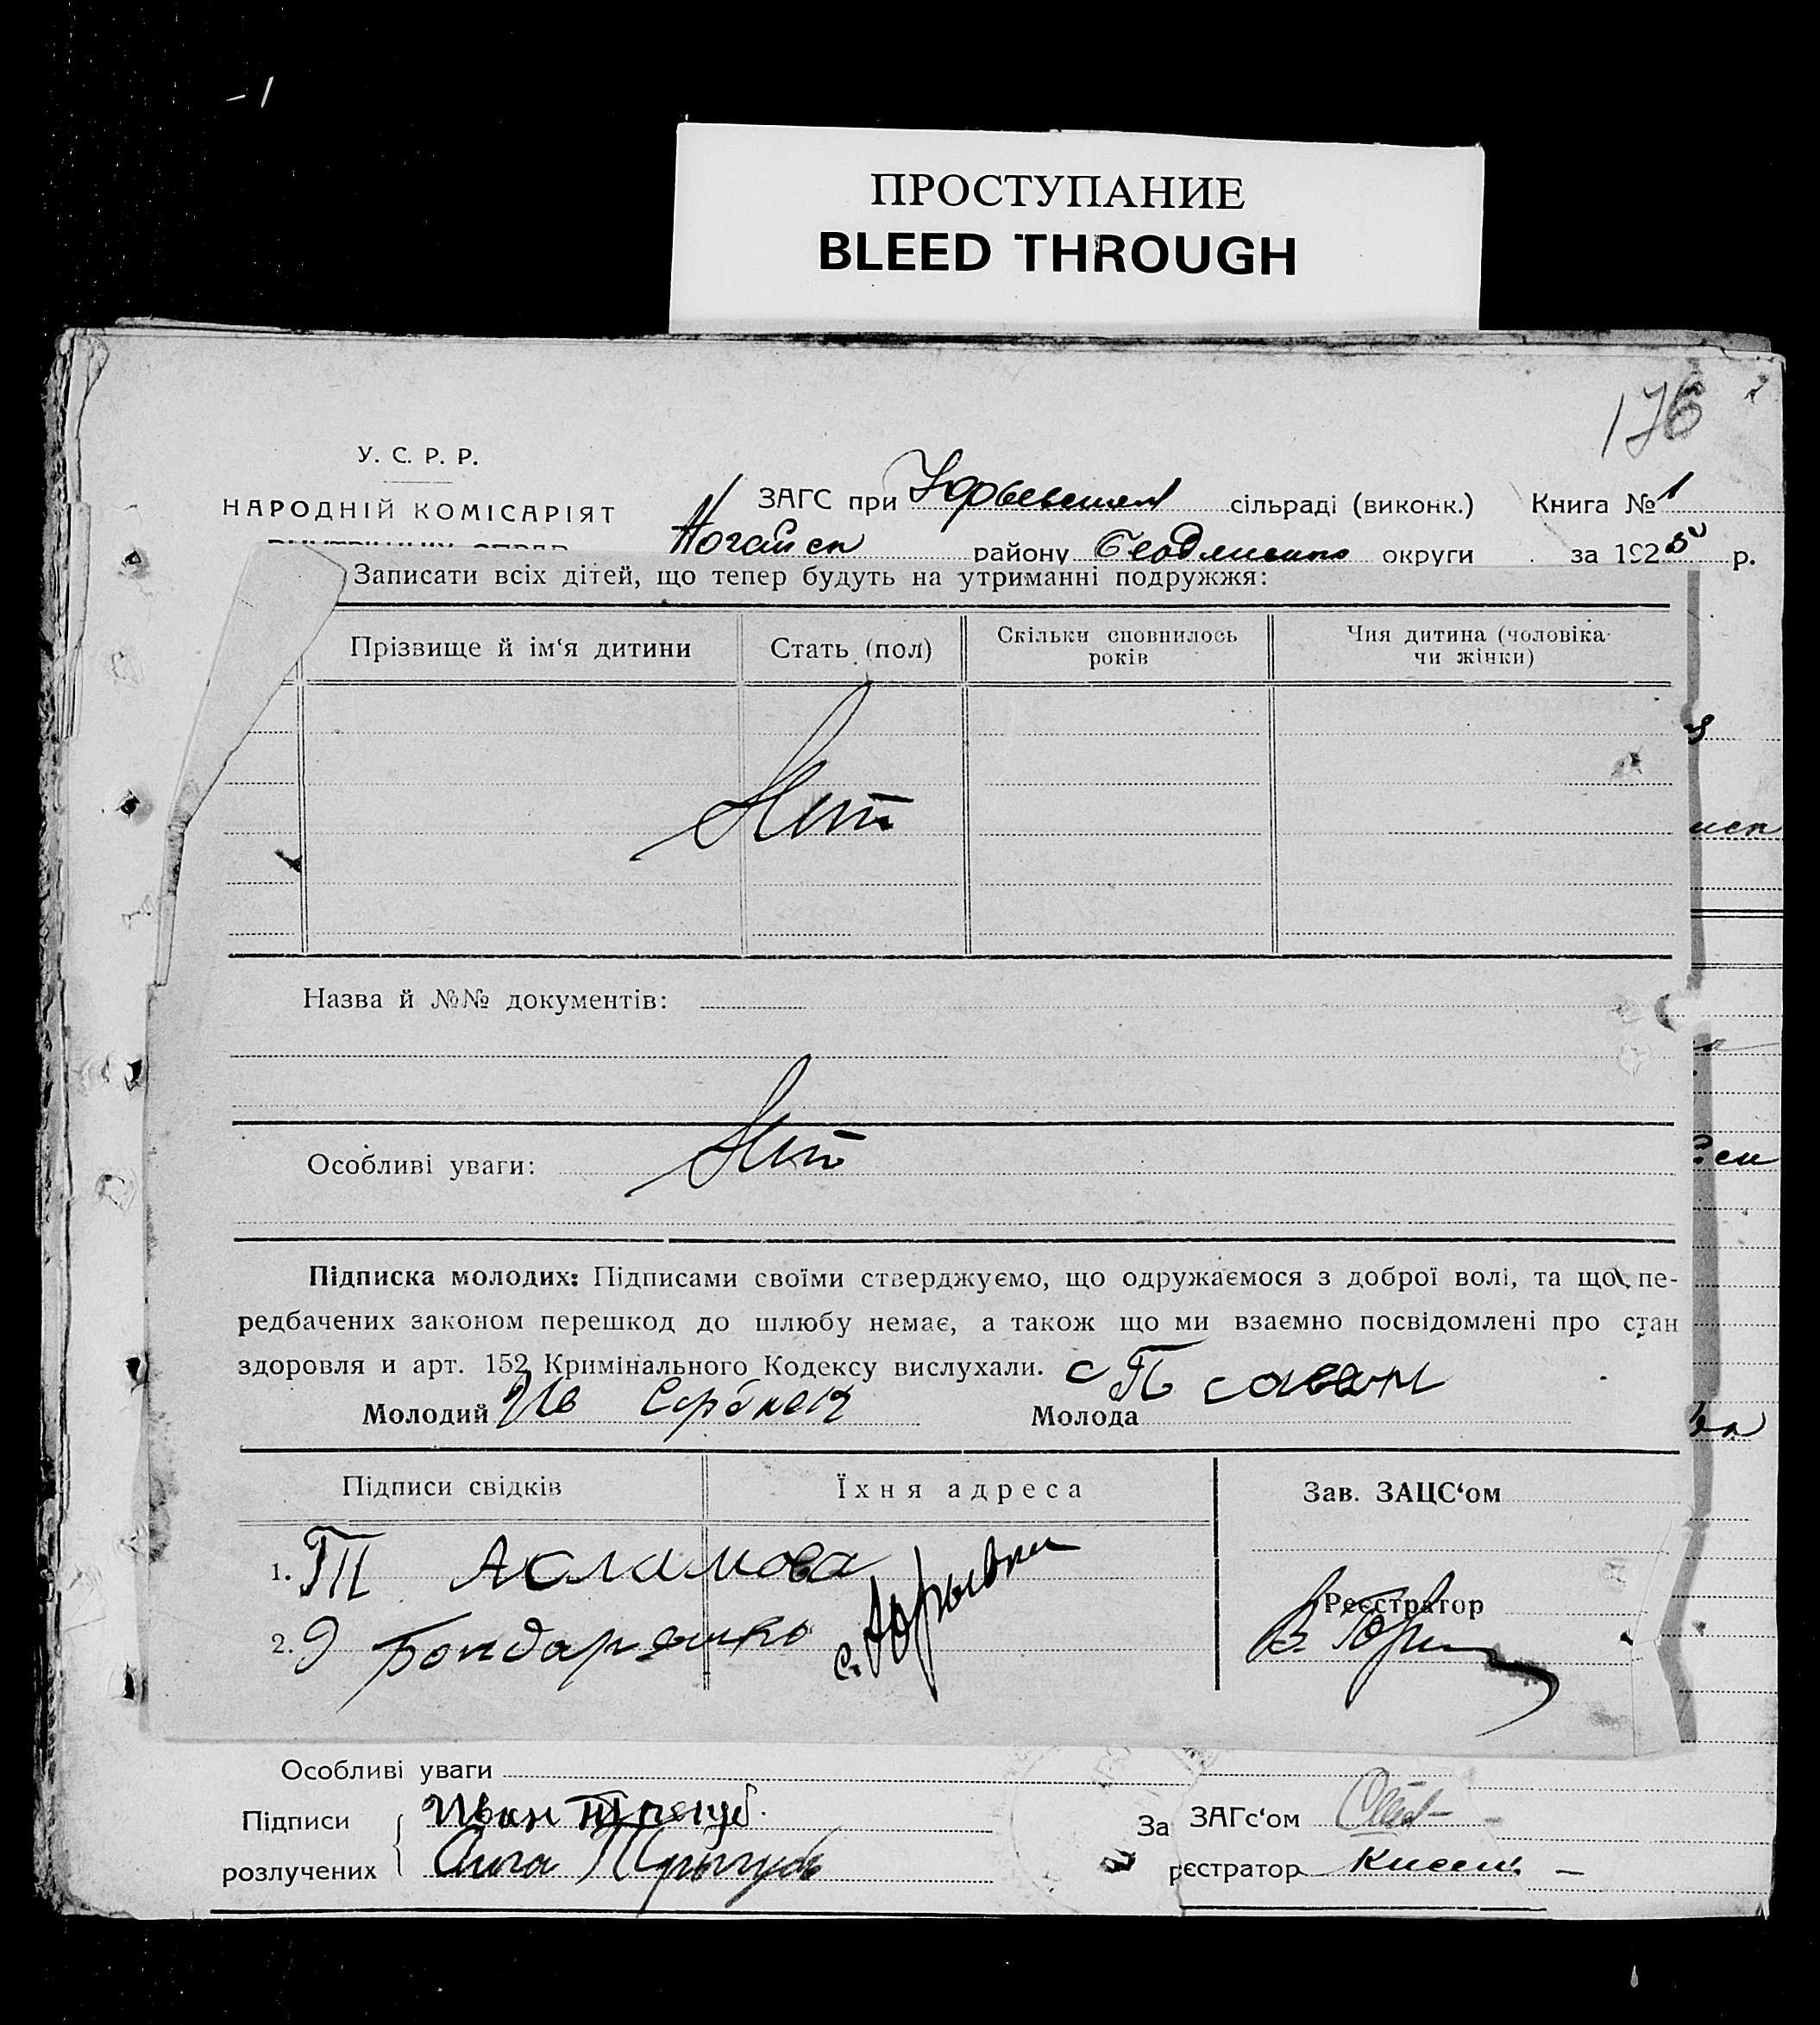 ПРОСТУПАНИЕ
BLEED THROUGH
176
У. С. Р. Р.
НАРОДНІЙ КОМІСАРІЯТ
ЗАГС при сільраді (виконк.) Книга № 1
Ногайск району округи за 1925 р.
Записати всіх дітей, що тепер будуть на утриманні подружжя:
Прізвище й ім‘я дитини Стать (пол) Скільки сповнилось років Чия дитина (чоловіка чи жінки)
Нет
Назва й №№ документів:
Особливі уваги: Нет
Підписка молодих: Підписами своїми стверджуємо, що одружаємося з доброї волі, та що пе-
редбачених законом перешкод до шлюбу немає, а також що ми взаємно посвідомлені про стан
здоровля и арт. 152 Кримінального Кодексу вислухали.
Молодий Молода
Підписи свідків Їхня адреса Зав. ЗАЦС‘ом
1. Т Асламова
Реєстратор
2. Бондаренко
Особливі уваги
Підписи Иван За ЗАГс‘ом
розлучених рєстратор